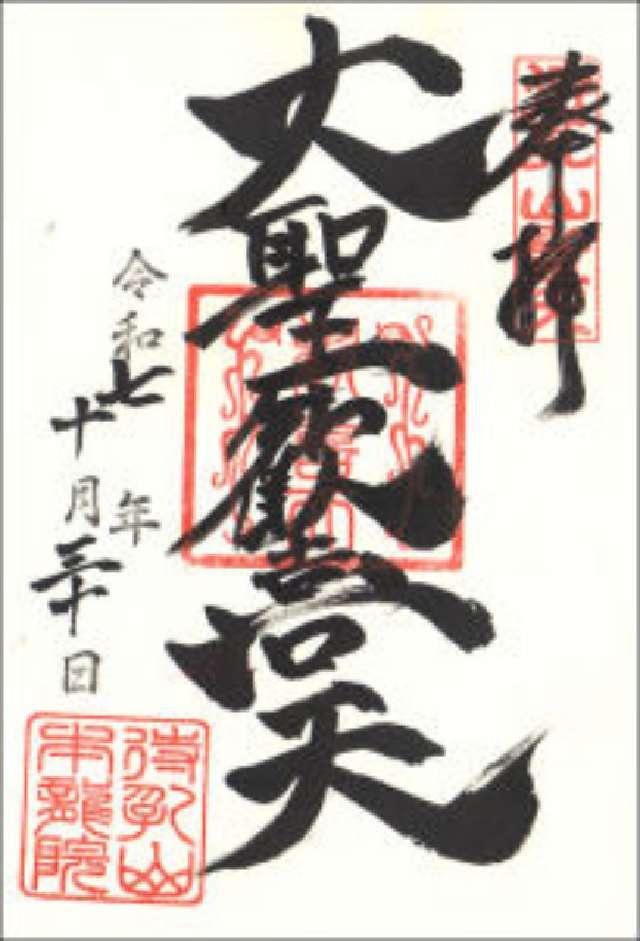 奉拝
大聖歓喜天
令和七年
十月三十日
待乳山
本龍院